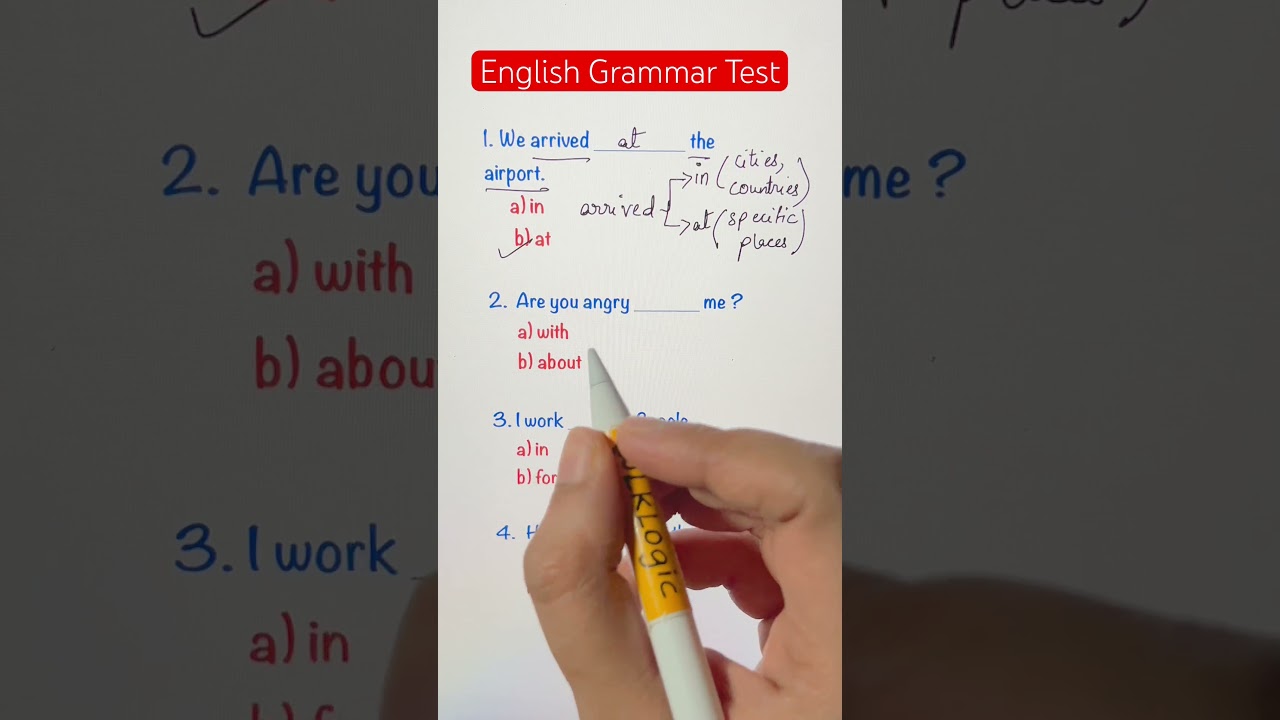 English Grammar Test
1. We arrived at the
airport.
a) in
b) at
arrived
in (cities, countries)
at (specific places)
2. Are you angry ______ me ?
a) with
b) about
3. I work
a) in
b) for
4.
places)
2. Are you
me ?
a) with
b) abou
3. I work
a) in